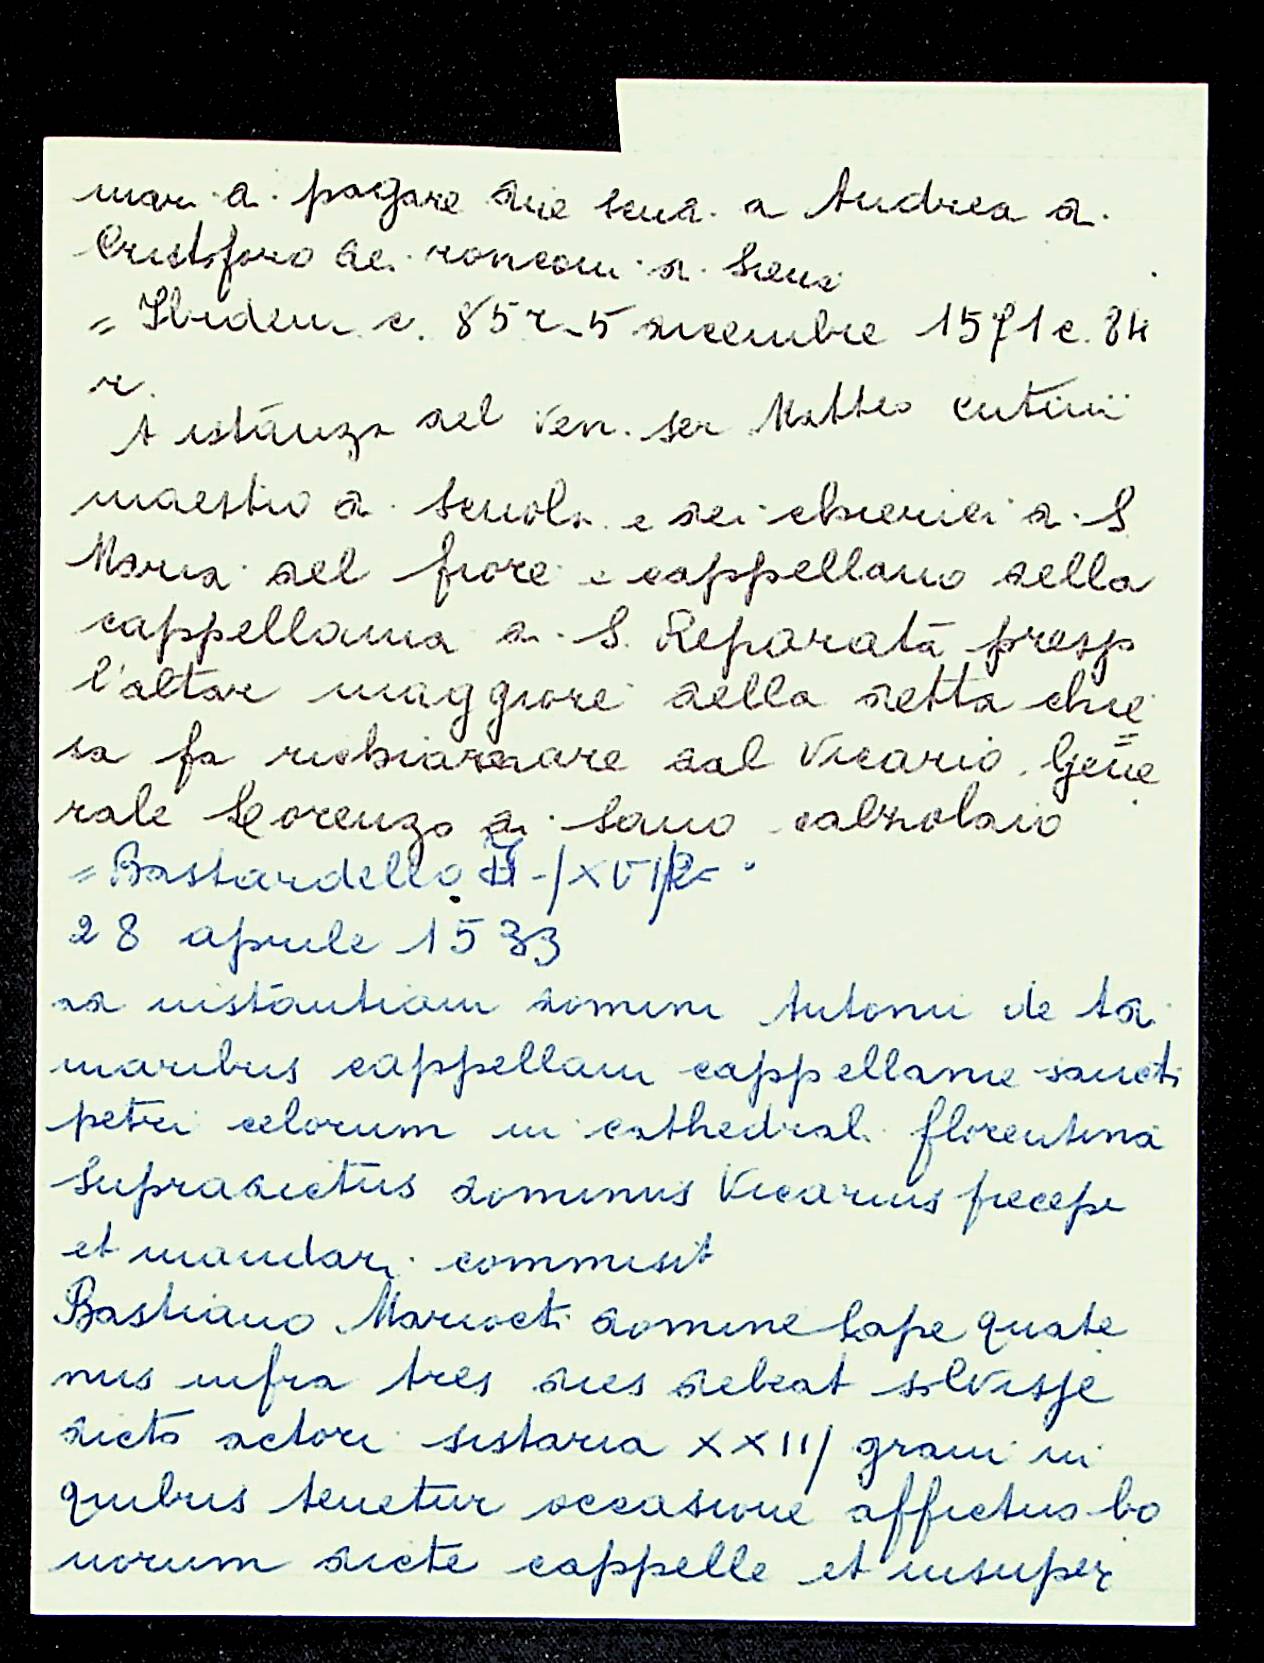 mari di pagare due scudi a Andrea di
Cristoforo dei ronconi di Siena
= Ibidem c. 85 r - 5 dicembre 1571 c. 84
r.
A istanza del Ven. ser Matteo
maestro di scuola e dei chierici di S
Maria del fiore e cappellano della
cappellania di S. Reparata presso
l'altar maggiore della detta chie
sa fa richiamare dal Vicario Gene
rale Lorenzo di calzolaio
= Bastardello
28 aprile 1533
ad instantiam domini Antonii de Ada
maribus cappellani cappellanie sancti
petri celorum in cathedrali florentina
Supradictus dominus Vicarius precepi
et mandari commisit
Bastiano Mariocti domine Lape quate
nus infra tres dies debeat solvisse
dicto actori sistaria XXIIJ grani in
quibus tenetur occasione affictus bo
norum dicte cappelle et insuper